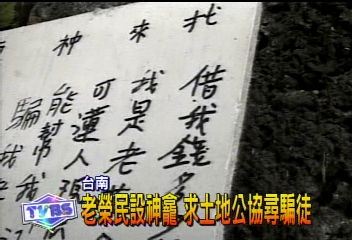 找來神
借我錢多
我是老
可蓮人
能幫
騙
台南
老榮民設神龕 求土地公協尋騙徒
TVBS